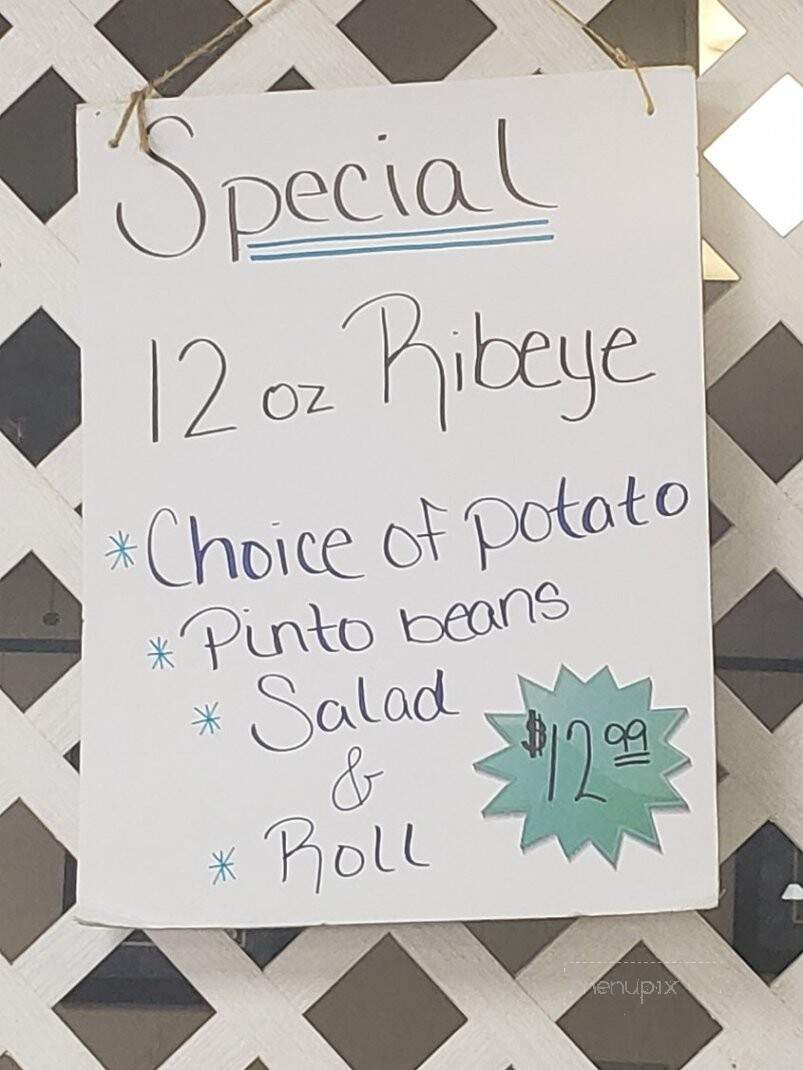 Special
12 oz Ribeye
* Choice of potato
* Pinto beans
* Salad
&
* Roll
$12.99
menupix